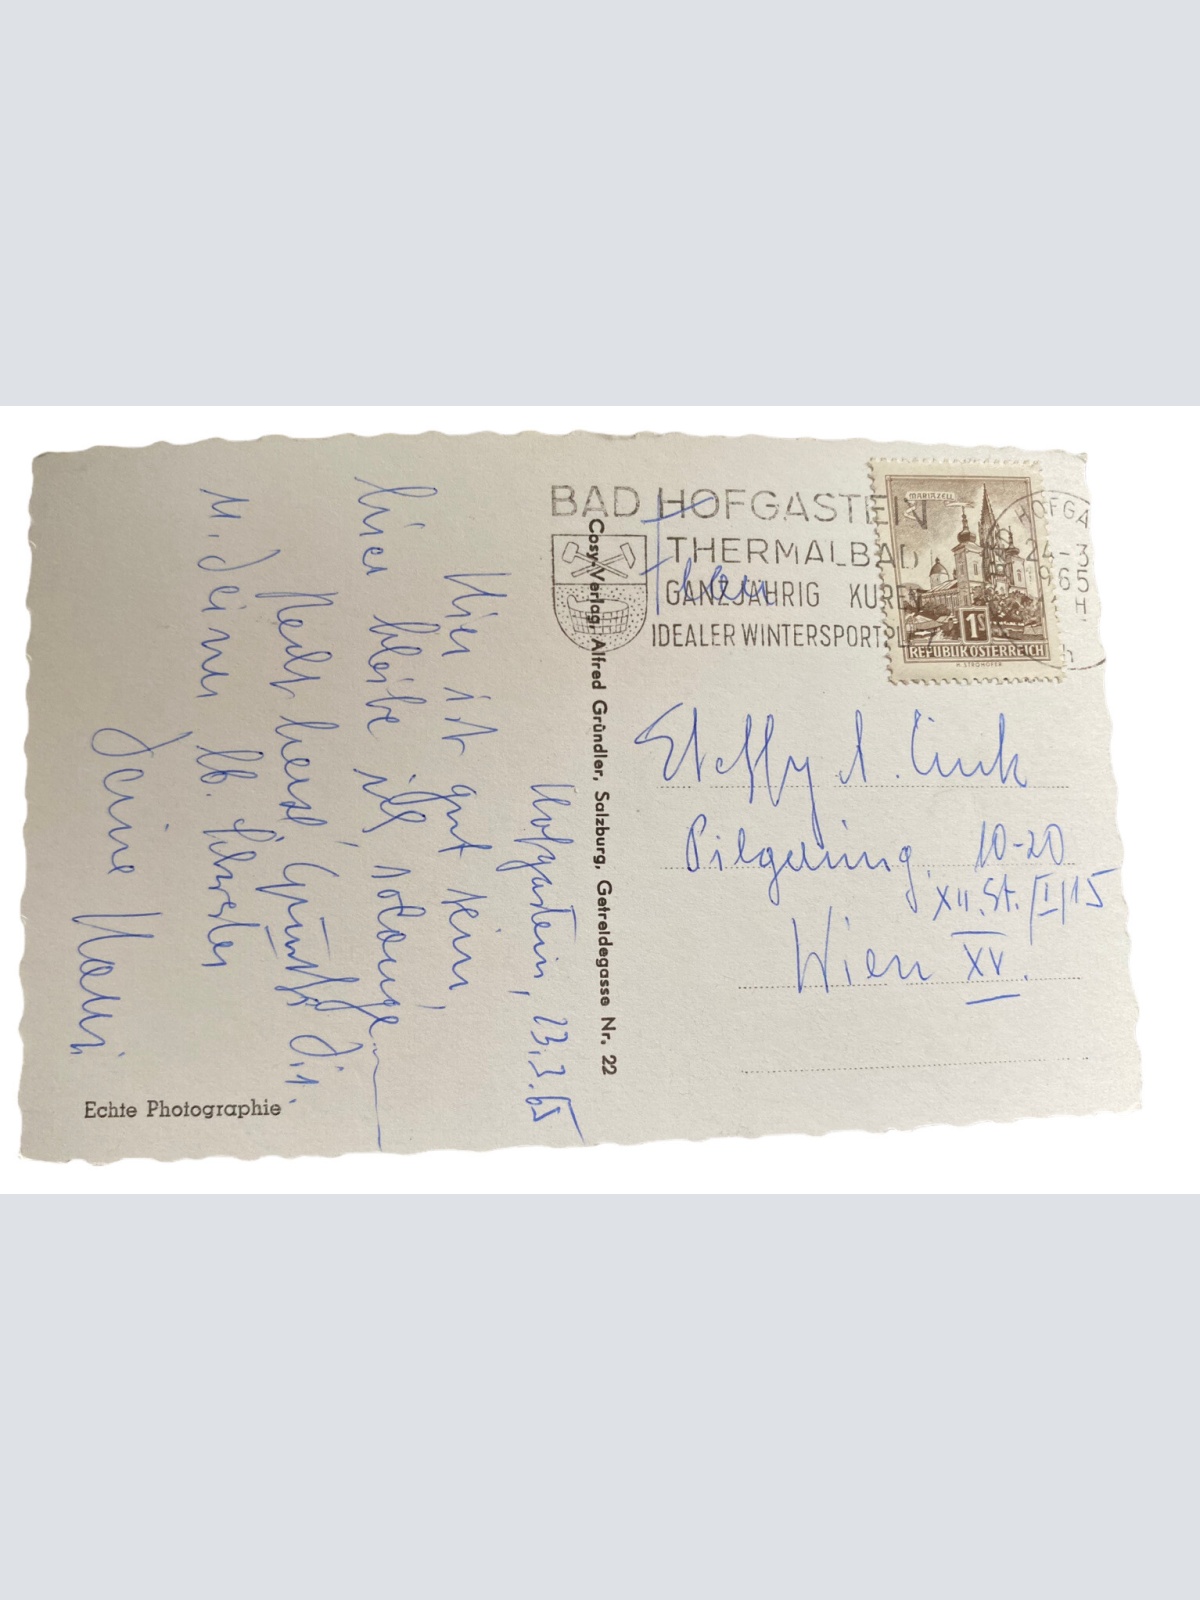 Hofgastein, 23.3.65
Hier ist gut sein,
hier bleibe ich solange
Recht herzl. Grüße Dir
u. Deiner lb. Schwester
Deine Hansi
Echte Photographie
Cosy-Verlag, Alfred Gründler, Salzburg, Getreidegasse Nr. 22
BAD HOFGASTEIN
THERMALBAD
GANZJÄHRIG KURB
IDEALER WINTERSPORTPL
MARIAZELL
1S
REPUBLIK ÖSTERREICH
H. STROHOFER
HOFGA
24-3
1965
H
Steffy
Pilgering. 10-20
XII. St. /I/15
Wien XV.